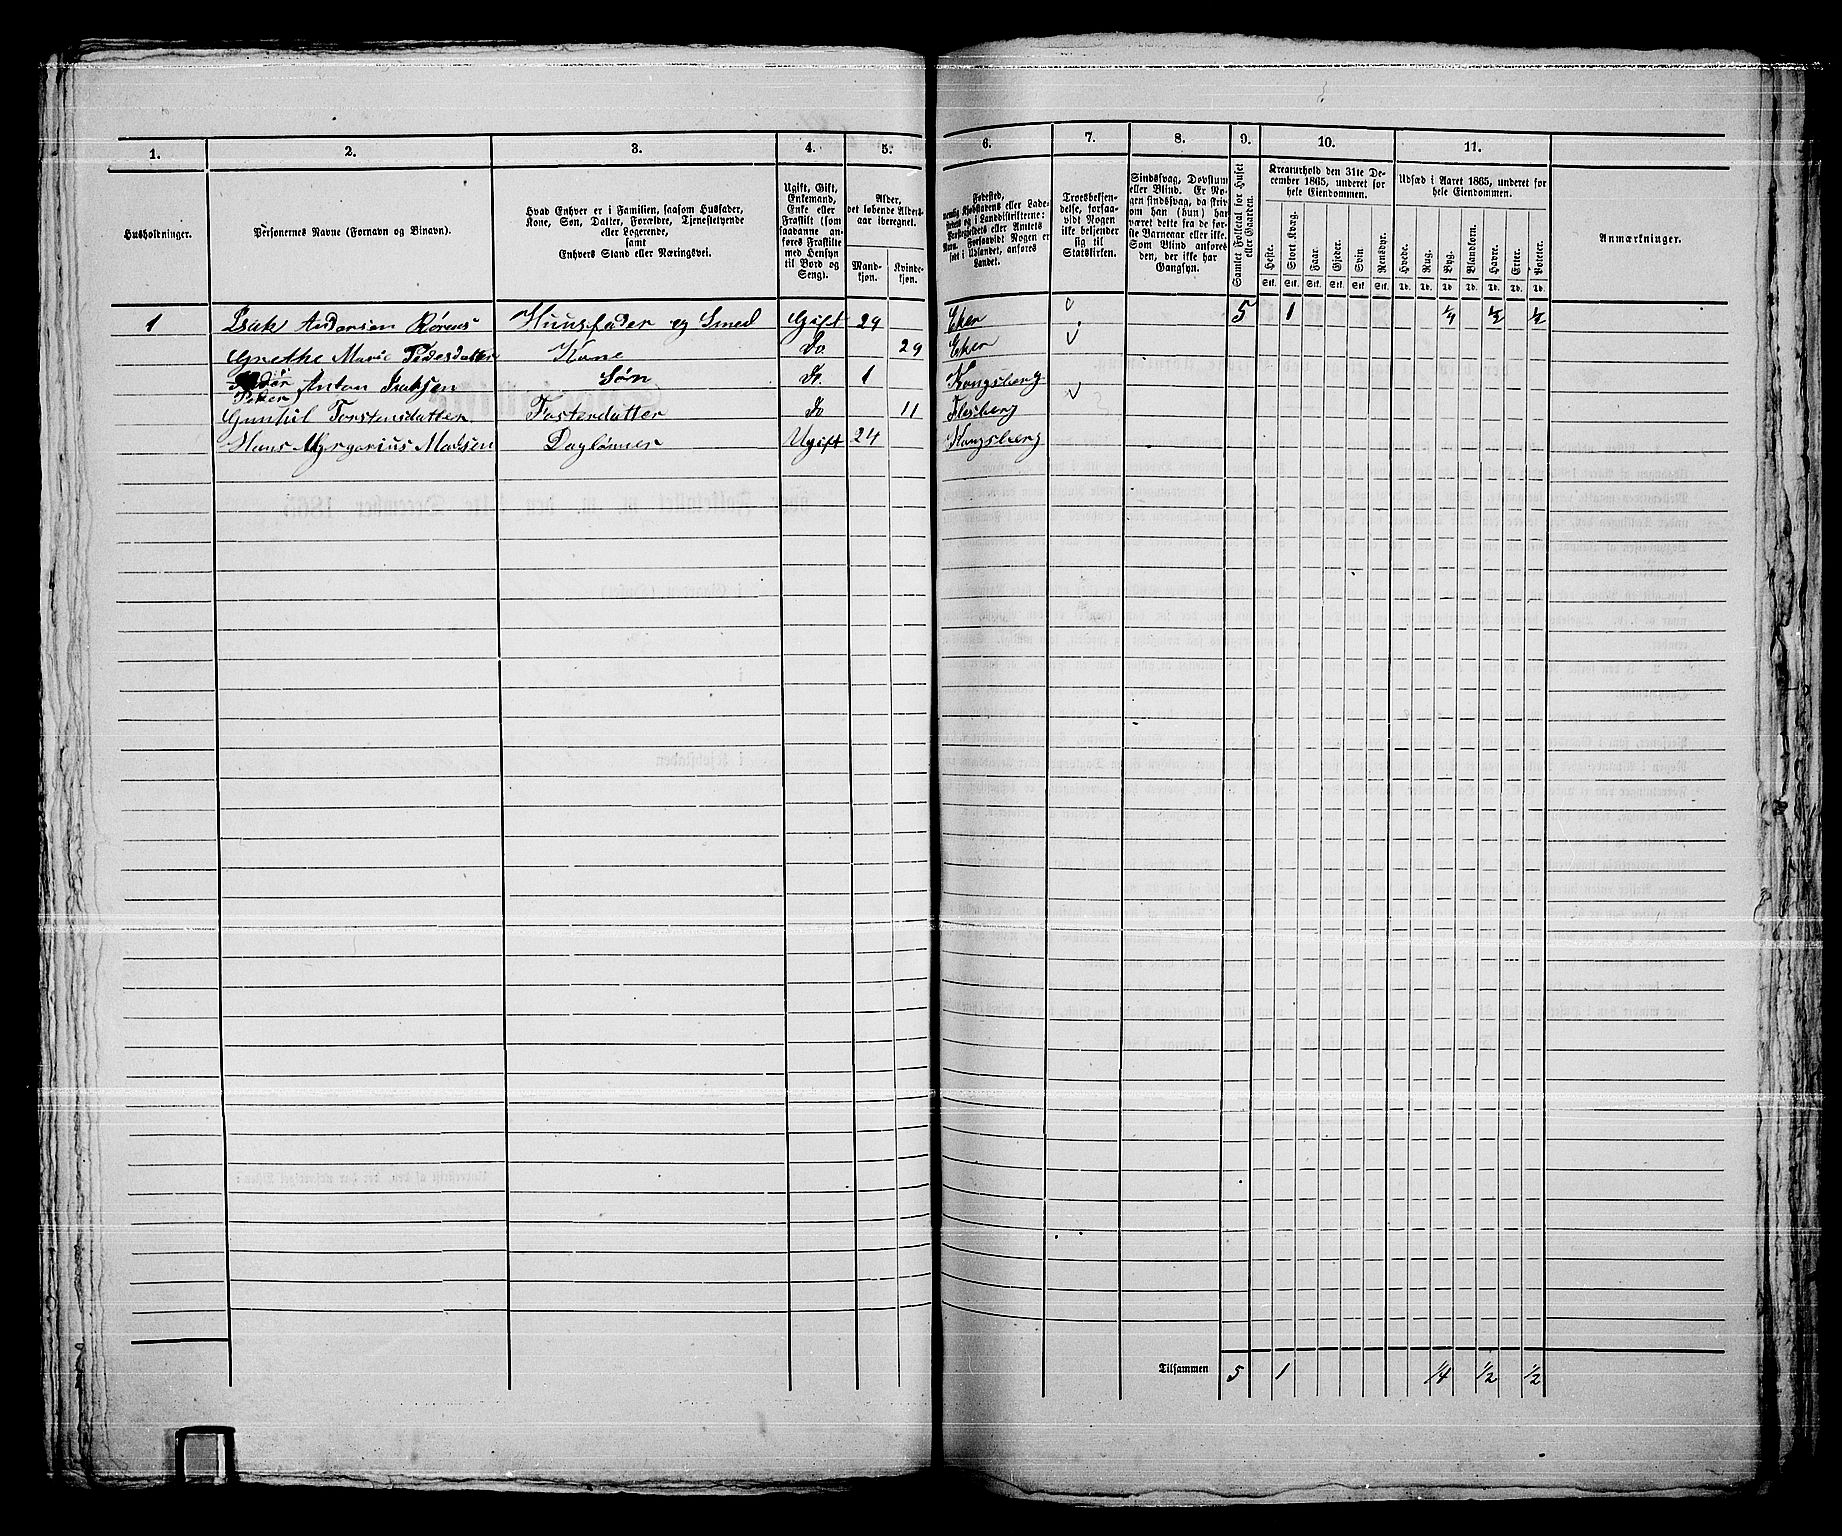 1. 2. 3. 4. 5. 6. 7. 8. 9. 10. 11.
Husholdninger.
Personernes Navne (Fornavn og Binavn).
Hvad Enhver er i Familien, saasom Husfader,
Kone, Søn, Datter, Forældre, Tjenestetyende
eller Logerende,
samt
Enhvers Stand eller Næringsvei.
Ugift, Gift,
Enkemand,
Enke eller
Fraskilt (som
saadanne an-
føres Fraskilte
med Hensyn
til Bord og
Seng).
Alder,
det løbende Alders-
aar iberegnet.
Mand-
kjøn.
Kvinde-
kjøn.
Fødested,
nemlig Kjøbstadens eller Lade-
stedets eller i Landdistrikterne:
Præstegjeldets eller Amtets
Navn. Forsaavidt Nogen er
født i Udlandet, anføres
Landet.
Troesbekjen-
delse, forsaa-
vidt Nogen
ikke bekjender
sig til
Statskirken.
Sindssvag, Døvstum
eller Blind. Er No-
gen sindssvag, da skriv
om han (hun) har
været dette fra de før-
ste Barneaar eller ikke.
Som Blind anføres
den, der ikke har
Gangsyn.
Samlet Folketal for Huset
eller Gaarden.
Kreaturhold den 31te De-
cember 1865, underet for
hele Eiendommen.
Heste. Stort Kvæg. Faar. Gjeder. Svin Rensdyr.
Stk. Stk. Stk. Stk. Stk. Stk.
Udsæd i Aaret 1865, underet for
hele Eiendommen.
Hvede. Rug. Byg. Blandkorn. Havre. Erter. Poteter.
Td. Td. Td. Td. Td. Td. Td.
Anmærkninger.
1 Isak Andersen Rørens Huusfader og Smed Gift 29 Eker 5 1 1/4 1/2 1/2
Grethe Marie Pedersdatter Kone Do. 29 Eker
Peder Anton Isaksen Søn Do. 1 Kongsberg
Peter
Gunhil Torstensdatter Fosterdatter Do 11 Flesberg
Hans Madsen Daglønner Ugift 24 Kongsberg
Tilsammen 5 1 1/4 1/2 1/2